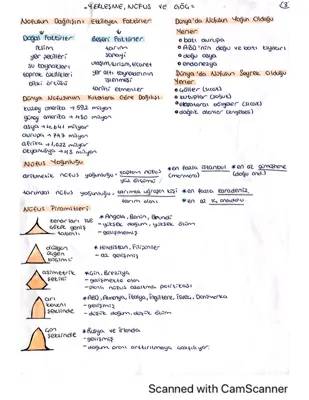 YERLEŞME, NÜFUS VE GÖÇ
Nüfusun Dağılışını Etkileyen Faktörler
Doğal Faktörler
Beşeri Faktörler
iklim
yer şekilleri
su kaynakları
toprak özellikleri
bitki örtüsü
tarım
sanayi
ulaşım, turizm, ticaret
yer altı zenginliklerinin
işletilmesi
tarihi etmenler
Dünya'da Nüfusun Yoğun Olduğu
Yerler
• batı avrupa
• ABD'nin doğu ve batı kıyıları
• doğu asya
• endonezya
Dünya'da Nüfusun Seyrek Olduğu
Yerler
• çöller (sıcak)
• kutuplar (soğuk)
• ekvatoral bölgeler (sıcak)
• dağlık alanlar (engebeli)
Dünya Nüfusunun Kıtalara Göre Dağılışı
kuzey amerika → 592 milyon
güney amerika → 430 milyon
asya → 4,641 milyar
avrupa → 747 milyon
afrika → 1,022 milyar
okyanusya → 43 milyon
Nüfus Yoğunluğu
aritmetik nüfus yoğunluğu = toplam nüfus
yüz ölçümü
* en fazla istanbul
(marmara)
* en az gümüşhane
(doğu and.)
tarımsal nüfus yoğunluğu = tarımla uğraşan kişi
tarım alanı
* en fazla karadeniz
* en az iç anadolu
Nüfus Piramitleri
kenarları içe
doğru geniş
tabanlı
* Angola, Benin, Burundi
- yüksek doğum, yüksek ölüm
- gelişmemiş
düzgün
üçgen
biçimli
* Hindistan, Filipinler
- az gelişmiş
asimetrik
şekilli
* Çin, Brezilya
- gelişmekte olan
- nüfus azaltma politikası
arı
kovanı
şeklinde
* ABD, Almanya, İtalya, İngiltere, Danimarka
- gelişmiş
- düşük doğum, düşük ölüm
çan
şeklinde
* Rusya ve İrlanda
- gelişmiş
- doğum oranı arttırılmaya çalışılıyor.
Scanned with CamScanner